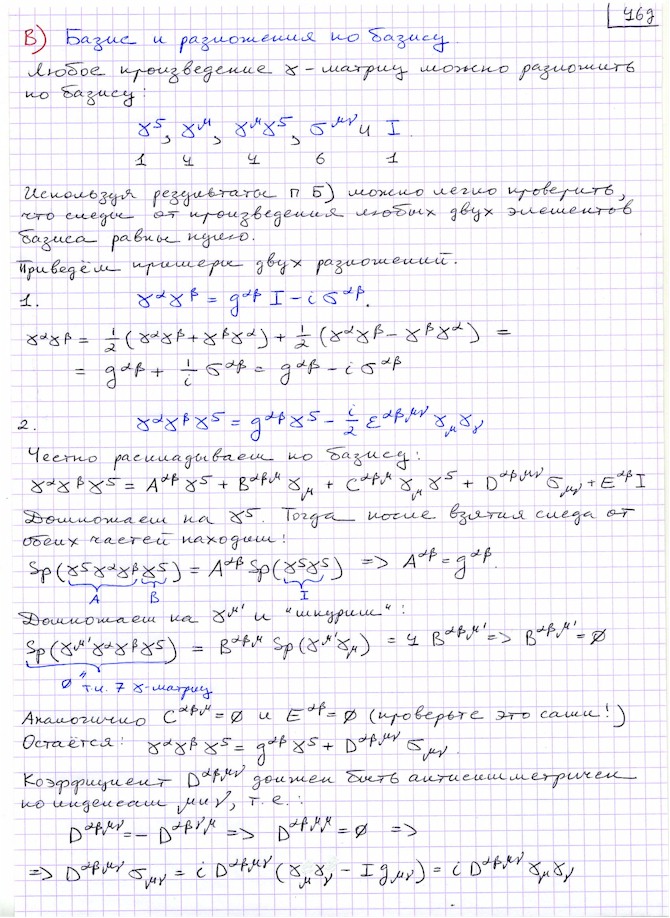 46g
В) Базис и разложения по базису.
Любое произведение γ-матриц можно разложить
по базису:
γ⁵, γ^μ, γ^μγ⁵, σ^{μν} и I.
1 4 4 6 1
Используя результаты п Б) можно легко проверить,
что следы от произведения любых двух элементов
базиса равны нулю.
Приведём примеры двух разложений.
1. γ^αγ^β = g^{αβ} I - i σ^{αβ}.
γ^αγ^β = 1/2 (γ^αγ^β + γ^βγ^α) + 1/2 (γ^αγ^β - γ^βγ^α) =
= g^{αβ} + 1/i σ^{αβ} = g^{αβ} - i σ^{αβ}
2. γ^αγ^βγ⁵ = g^{αβ}γ⁵ - i/2 ε^{αβμν} γ_μγ_ν
Честно раскладываем по базису:
γ^αγ^βγ⁵ = A^{αβ}γ⁵ + B^{αβμ}γ_μ + C^{αβμ}γ_μγ⁵ + D^{αβμν}σ_{μν} + E^{αβ}I
Домножаем на γ⁵. Тогда после взятия следа от
обеих частей находим:
Sp(γ⁵γ^αγ^βγ⁵) = A^{αβ} Sp(γ⁵γ⁵) => A^{αβ} = g^{αβ}.
A B I
Домножаем на γ^{μ'} и "шпурим":
Sp(γ^{μ'}γ^αγ^βγ⁵) = B^{αβμ} Sp(γ^{μ'}γ_μ) = 4 B^{αβμ'} => B^{αβμ'} = ∅
∅ " т.к. 7 γ-матриц
Аналогично C^{αβμ} = ∅ и E^{αβ} = ∅ (проверьте это сами!)
Остаётся: γ^αγ^βγ⁵ = g^{αβ}γ⁵ + D^{αβμν}σ_{μν}.
Коэффициент D^{αβμν} должен быть антисимметричен
по индексам μ и ν, т.е.:
D^{αβμν} = - D^{αβνμ} => D^{αβμμ} = ∅ =>
=> D^{αβμν}σ_{μν} = i D^{αβμν} (γ_μγ_ν - I g_{μν}) = i D^{αβμν}γ_μγ_ν